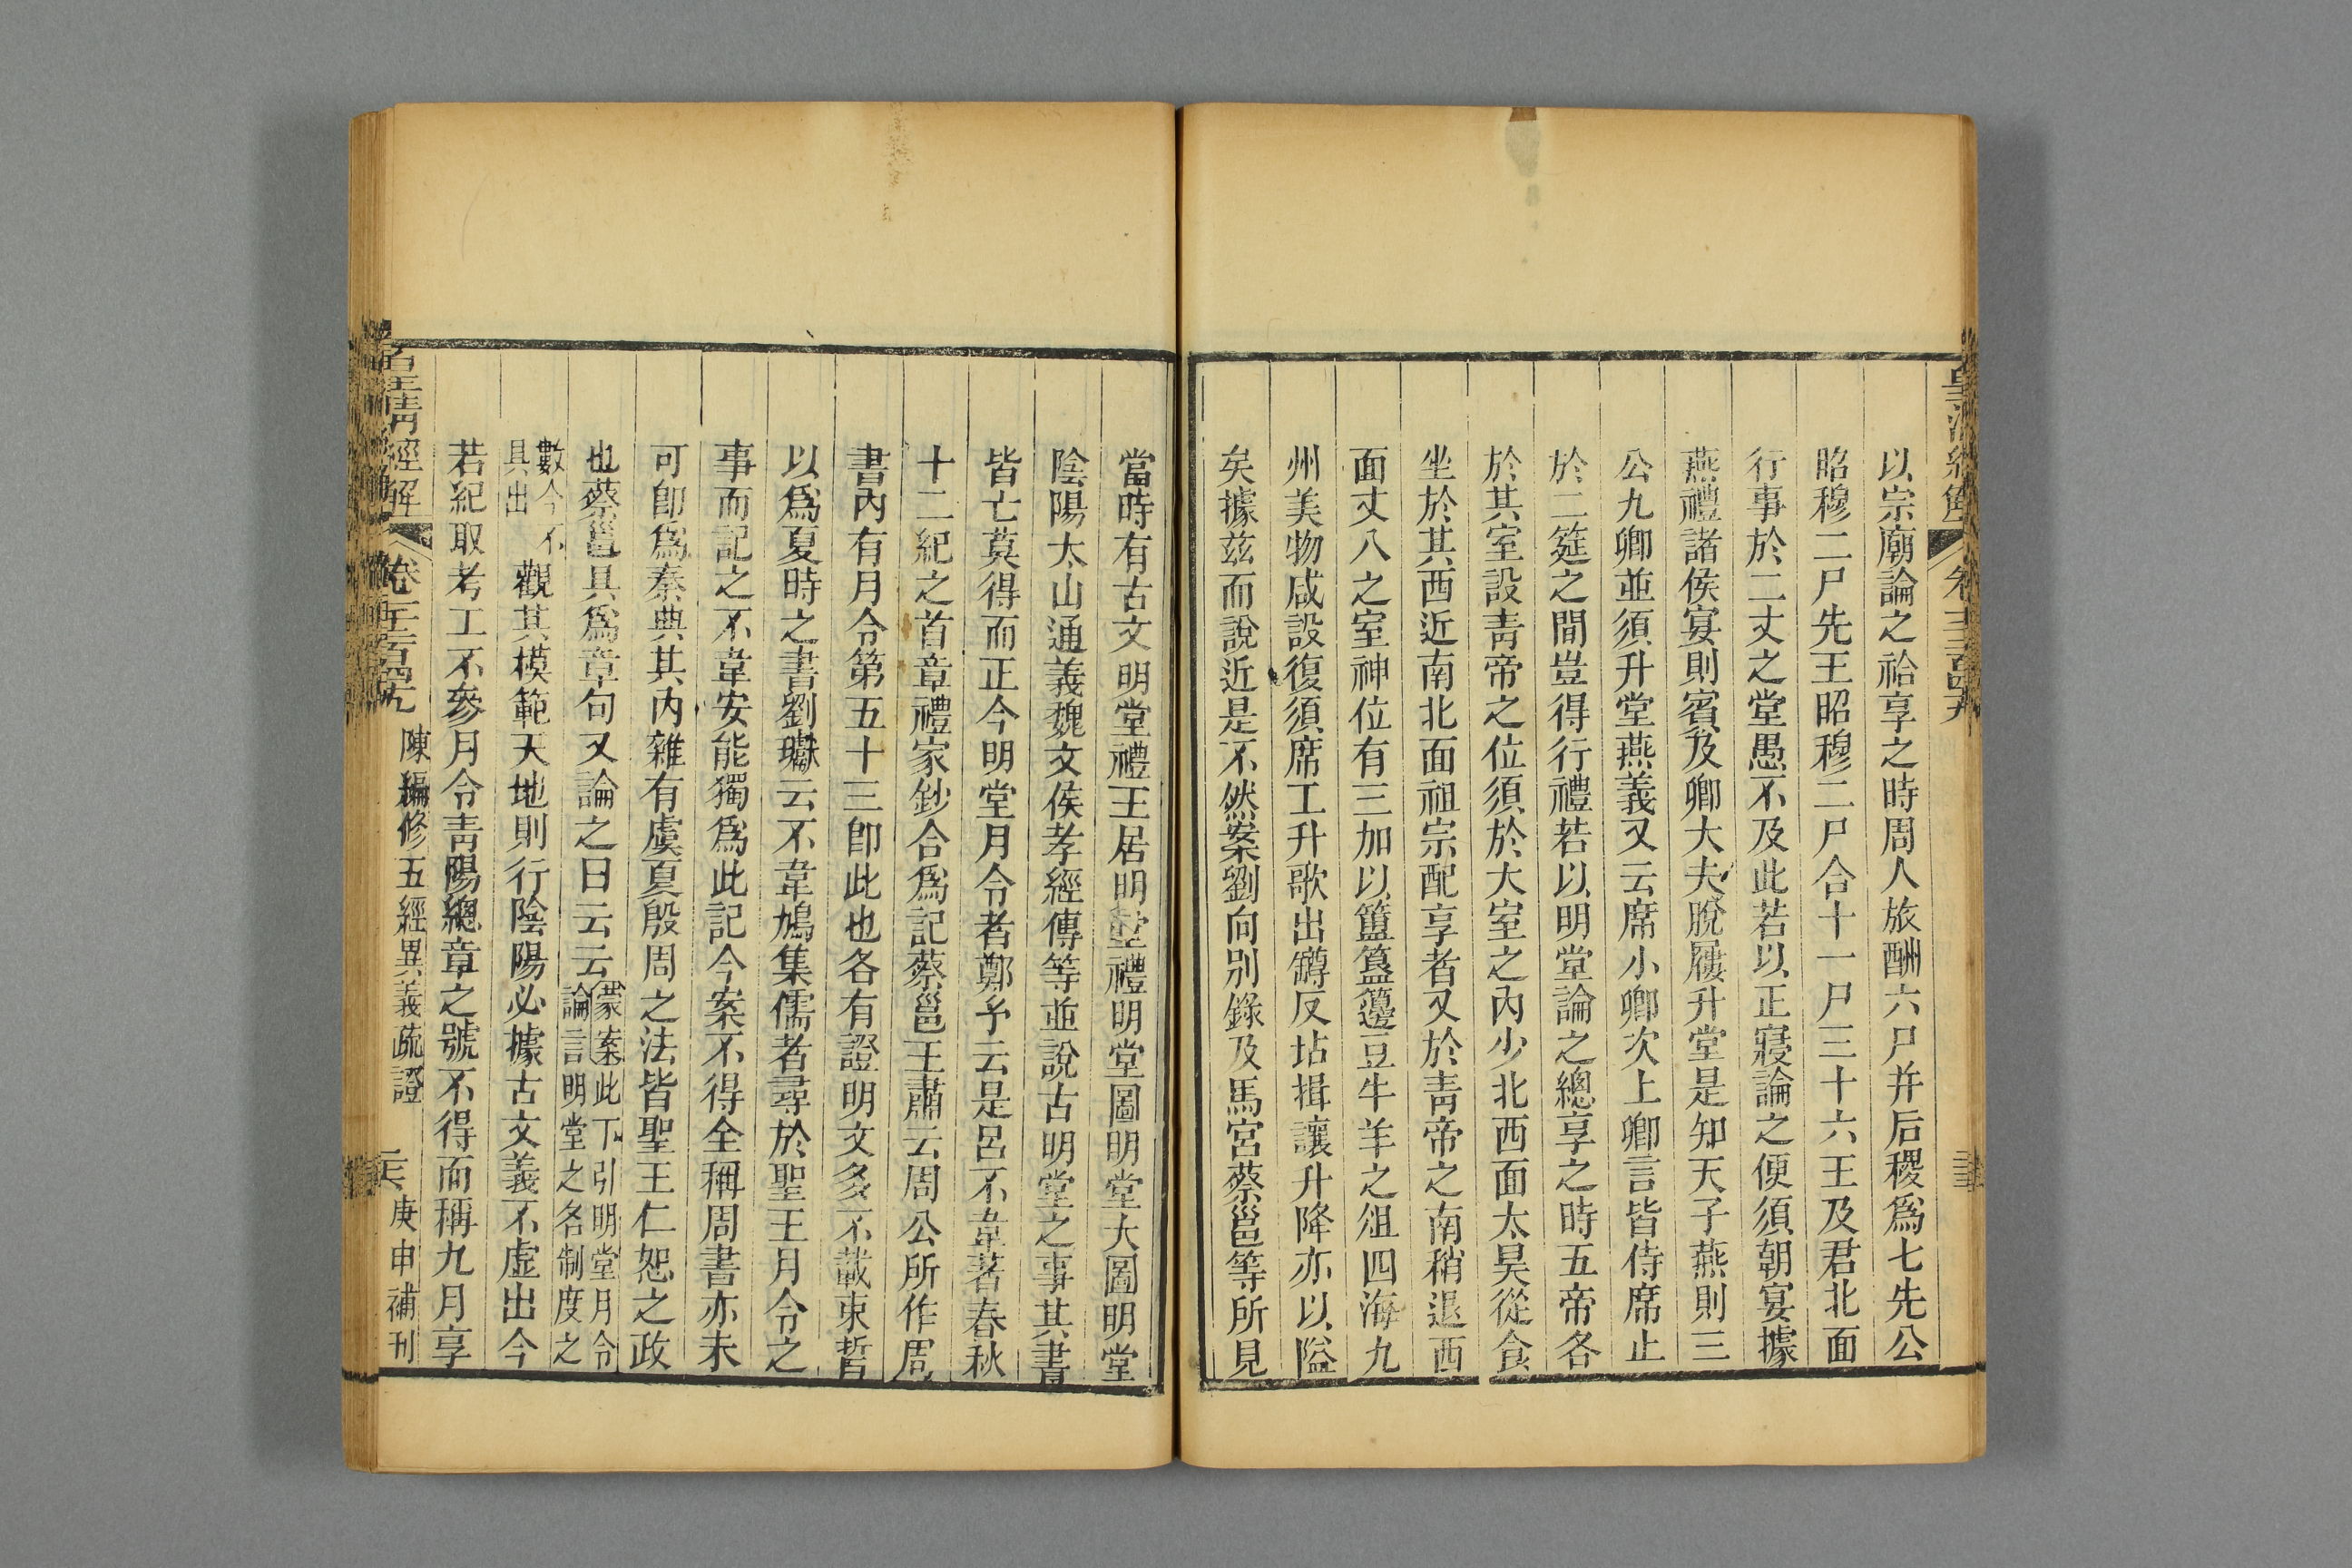 以宗廟論之祫享之時周人旅酬六尸并后稷爲七先公
昭穆二尸先王昭穆二尸合十一尸三十六王及君北面
行事於二丈之堂愚不及此若以正寢論之便須朝宴據
燕禮諸侯宴則賓及卿大夫脫屨升堂是知天子燕則三
公九卿並須升堂燕義又云席小卿次上卿言皆侍席止
於二筵之間豈得行禮若以明堂論之總享之時五帝各
於其室設靑帝之位須於大室之內少北西面太昊從食
坐於其西近南北面祖宗配享者又於靑帝之南稍退西
面丈八之室神位有三加以簠簋籩豆牛羊之俎四海九
州美物咸設復須席工升歌出罇反坫揖讓升降亦以隘
矣據玆而說近是不然案劉向別錄及馬宮蔡邕等所見
當時有古文明堂禮王居明堂禮明堂圖明堂大圖明堂
陰陽太山通義魏文侯孝經傳等並說古明堂之事其書
皆亡莫得而正今明堂月令者鄭予云是呂不韋著春秋
十二紀之首章禮家鈔合爲記蔡邕王肅云周公所作周
書內有月令第五十三卽此也各有證明文多不載束晳
以爲夏時之書劉瓛云不韋鳩集儒者尋於聖王月令之
事而記之不韋安能獨爲此記今案不得全稱周書亦未
可卽爲秦典其內雜有虞夏殷周之法皆聖王仁恕之政
也蔡邕具爲章句又論之曰云云蒙案此下引明堂月令
論言明堂之名制度之
數今不
具出
觀其模範天地則行陰陽必據古文義不虛出今
若紀取考工不參月令靑陽總章之號不得而稱九月享
皇淸經解 卷一千二百四十九 陳編修五經異義疏證 庚申補刊